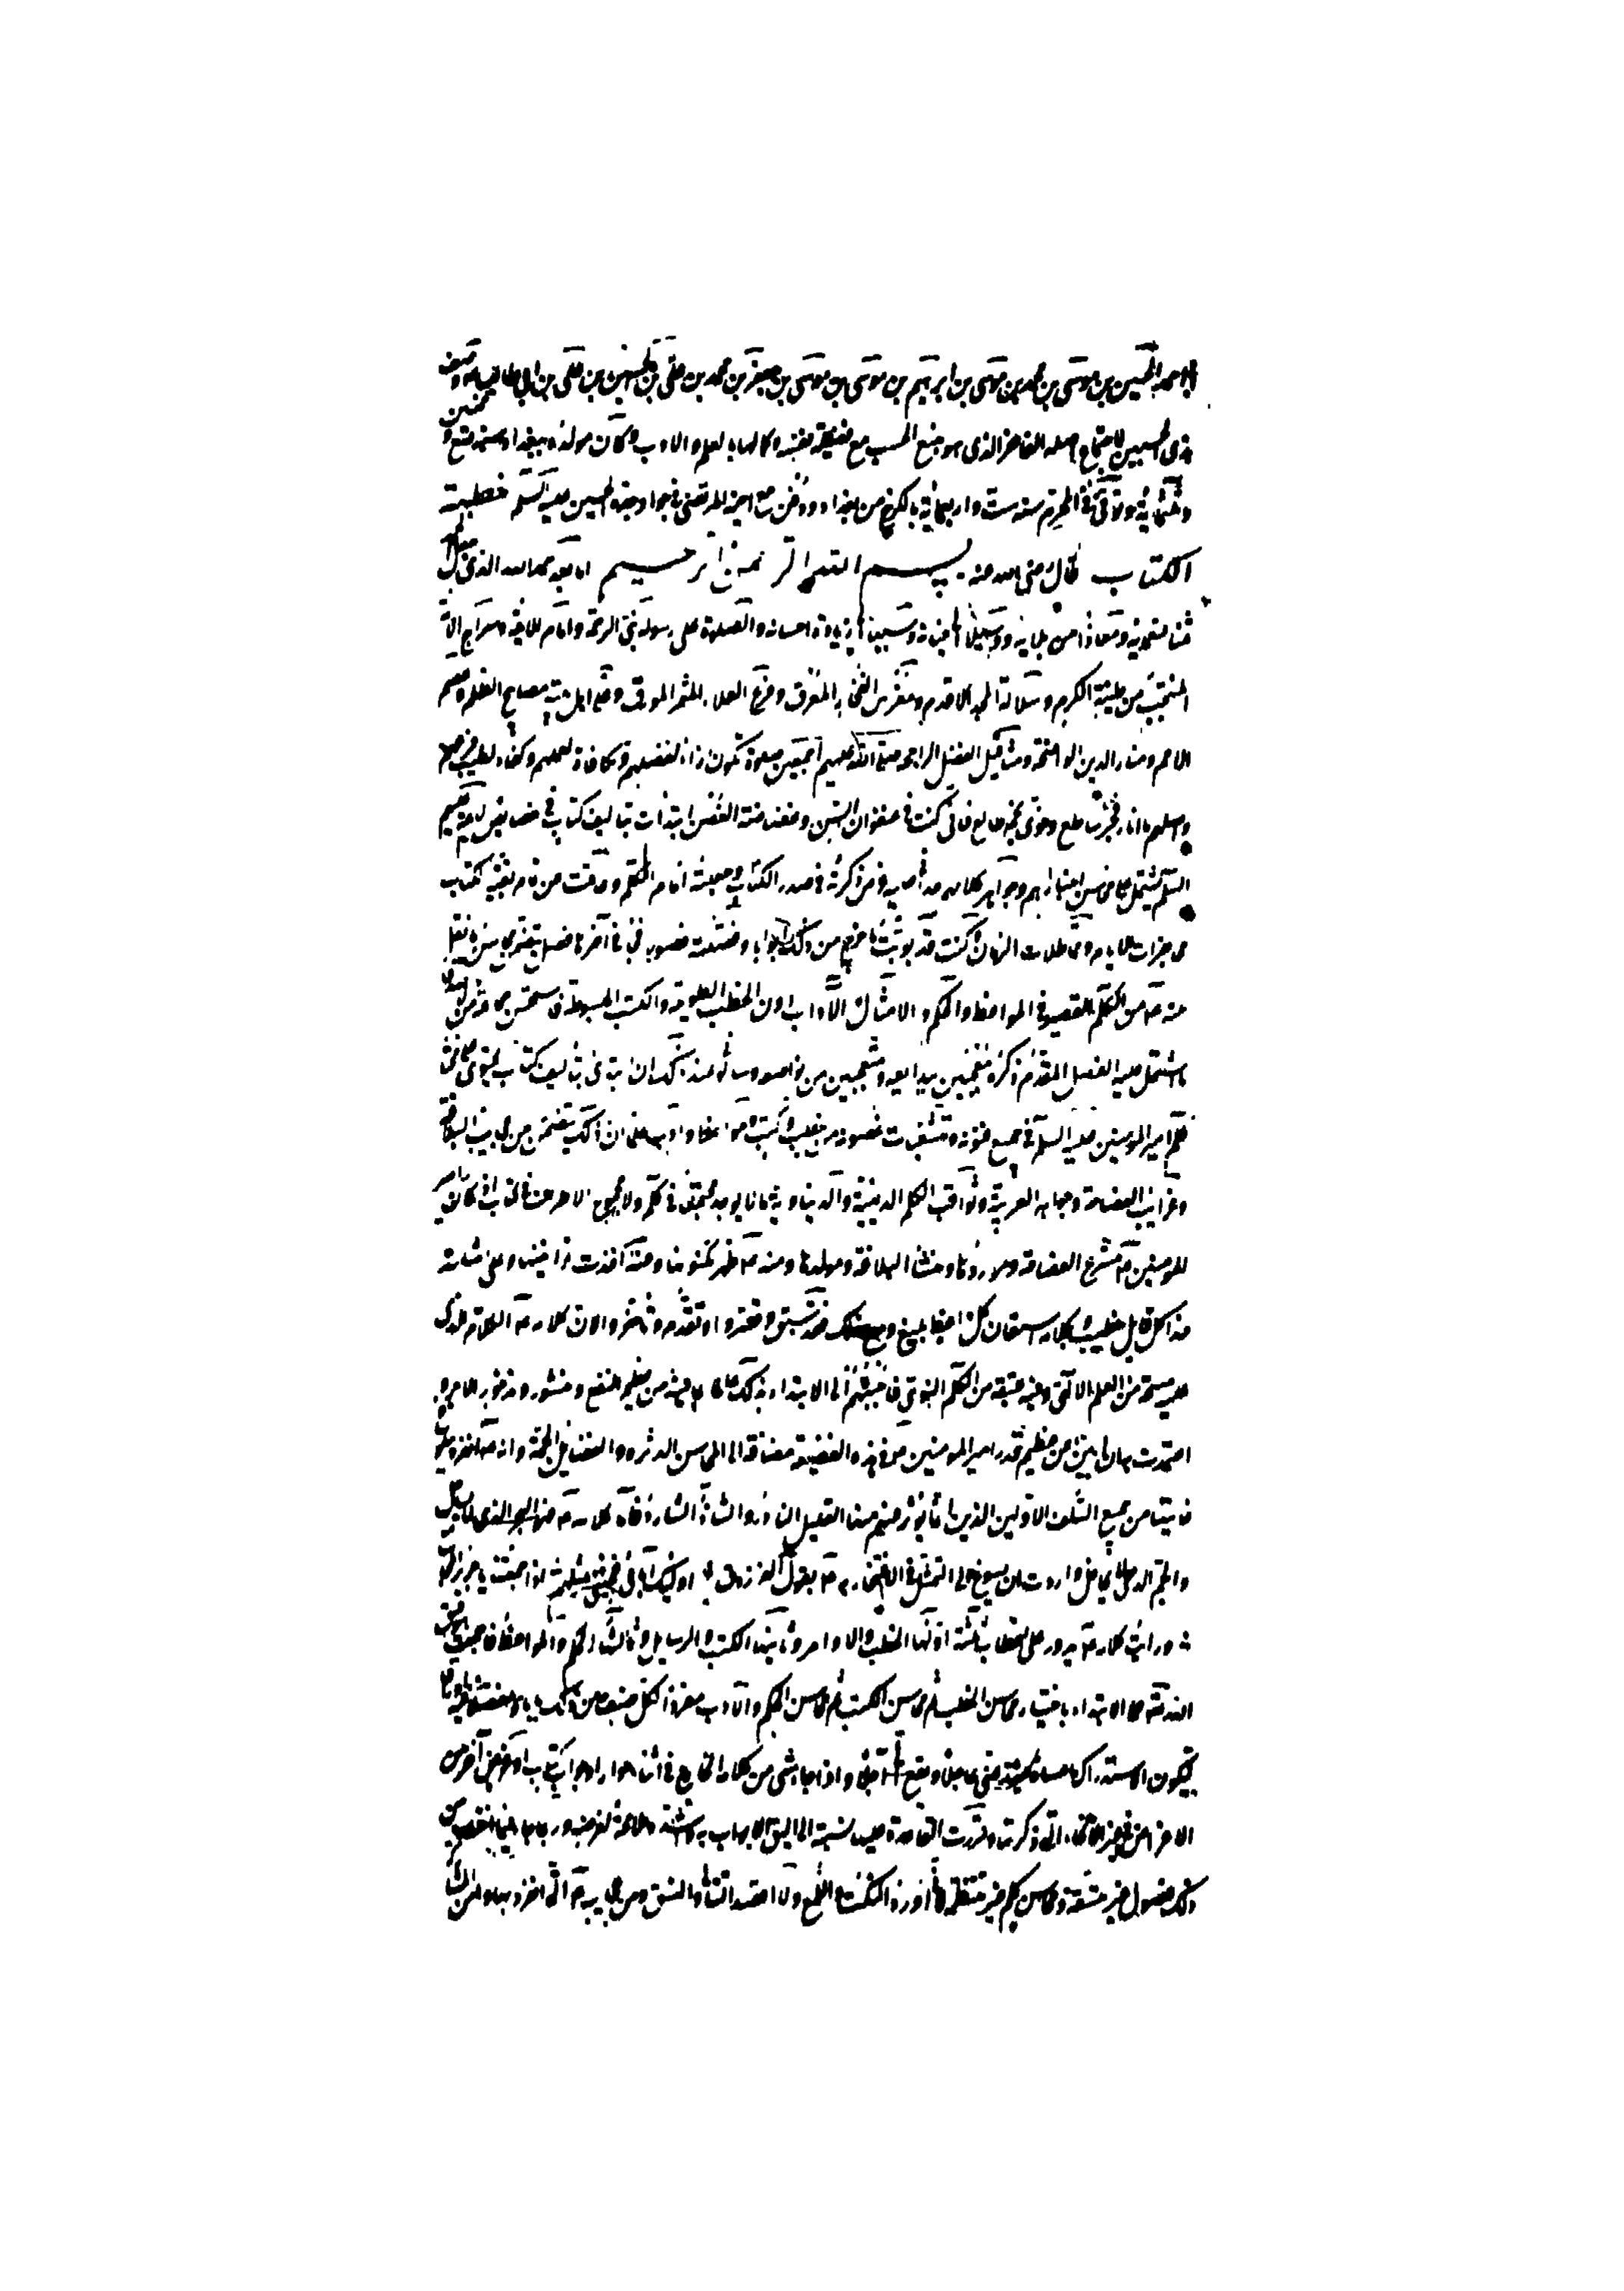 ابو احمد الحسين بن موسى بن محمد بن موسى بن ابرهيم بن موسى بن جعفر بن محمد بن على بن الحسين بن على بن ابى طالب ووصف
بذى الحسبين لاجتماع اصله الفاخر الذى هو منبع الحسب مع فضيلة نفسه وكمالها بالعلم والادب وكان مولده ببغداد سنة تسع وخمسين
وثلثمائة وتوفى فى المحرم سنة ست واربعمائة بالكرخ من بغداد ودفن مع اخيه المرتضى فى جوار جده الحسين عليه السلم خطبة
الكتاب قال رضى الله عنه بسم الله الرحمن الرحيم اما بعد حمد الله الذى جعل الحمد
ثمنا لنعمائه ومعاذا من بلائه ووسيلا الى جنانه وسببا لزيادة احسانه والصلوة على رسوله نبى الرحمة وامام الائمة وسراج الامة
المنتجب من طينة الكرم وسلالة المجد الاقدم ومغرس الفخار المعرق وفرع العلاء المثمر المورق وعلى اهل بيته مصابيح الظلم وعصم
الامم ومنار الدين الواضحة ومثاقيل الفضل الراجحة صلى الله عليهم اجمعين صلوة تكون ازاء لفضلهم ومكافاة لعملهم وكفاء لطيب فرعهم
واصلهم ما انار فجر ساطع وخوى نجم طالع فانى كنت فى عنفوان السن وغضاضة الغصن ابتدات بتاليف كتاب فى خصائص الائمة عليهم
السلم يشتمل على محاسن اخبارهم وجواهر كلامهم حدانى عليه غرض ذكرته فى صدر الكتاب وجعلته امام الكلام وعاقت عن اتمام بقية الكتاب
محاجزات الايام ومماطلات الزمان وكنت قد بوبت ما خرج من ذلك ابوابا وفصلته فصولا فجاء فى آخرها فصل يتضمن محاسن ما نقل
عنه ع من الكلم القصير فى المواعظ والحكم والامثال والآداب دون الخطب الطويلة والكتب المبسوطة فاستحسن جماعة من
ما اشتمل عليه الفصل المقدم ذكره معجبين ببدايعه ومتعجبين من نواصعه وسالونى عند ذلك ان ابتدئ بتاليف كتاب يحتوى على مختار
كلام امير المومنين عليه السلم فى جميع فنونه ومتشعبات غصونه من خطب وكتب ومواعظ وادب علما ان ذلك يتضمن من عجايب البلاغة
وغرايب الفصاحة وجواهر العربية وثواقب الكلم الدينية والدنياوية ما لا يوجد مجتمعا فى كلام ولا مجموع الاطراف فى كتاب اذ كان امير
المومنين ع مشرع الفصاحة وموردها ومنشأ البلاغة ومولدها ومنه ع ظهر مكنونها وعنه اخذت قوانينها وعلى امثلته
حذا كل قايل خطيب وبكلامه استعان كل واعظ بليغ ومع ذلك فقد سبق وقصروا وتقدم وتاخروا لان كلامه ع الكلام الذى
عليه مسحة من العلم الالهى وفيه عبقة من الكلام النبوى فاجبتهم الى الابتداء بذلك عالما بما فيه من عظيم النفع ومنشور الذكر ومذخور الاجر و
اعتمدت به ان ابين من عظيم قدر امير المومنين ع فى هذه الفضيلة مضافة الى المحاسن الدثرة والفضايل الجمة وانه ع انفرد ببلوغ
غايتها من جميع السلف الاولين الذين انما يؤثر عنهم منها القليل النادر والشاذ الشارد فاما كلامه ع فهو البحر الذى لا يساجل
والجم الذى لا يحافل واردت ان يسوغ لى التمثل فى الافتخار به ع بقول الفرزدق اولئك آبائى فجئنى بمثلهم اذا جمعتنا يا جرير المجامع
ورايت كلامه ع يدور على اقطاب ثلثة اولها الخطب والاوامر وثانيها الكتب والرسايل وثالثها الحكم والمواعظ فاجمعت بتوفيق
الله تعالى على الابتداء باختيار محاسن الخطب ثم محاسن الكتب ثم محاسن الحكم والادب مفردا لكل صنف من ذلك بابا ومفصلا فيه اوراقا
لتكون لاستدراك ما عساه يشذ عنى عاجلا ويقع الى آجلا واذا جاء شى من كلامه الخارج فى اثناء حوار او جواب كتاب او غرض آخر من
الاغراض فى غير الانحاء التى ذكرتها وقررت القاعدة عليها نسبته الى اليق الابواب به واشدها ملامحة لغرضه وربما جاء فيما اختاره من
ذلك فصول غير متسقة ومحاسن كلم غير منتظمة لانى اورد النكت واللمع ولا اقصد التتالى والنسق ومن عجايبه ع التى انفرد بها وامن المشاركة